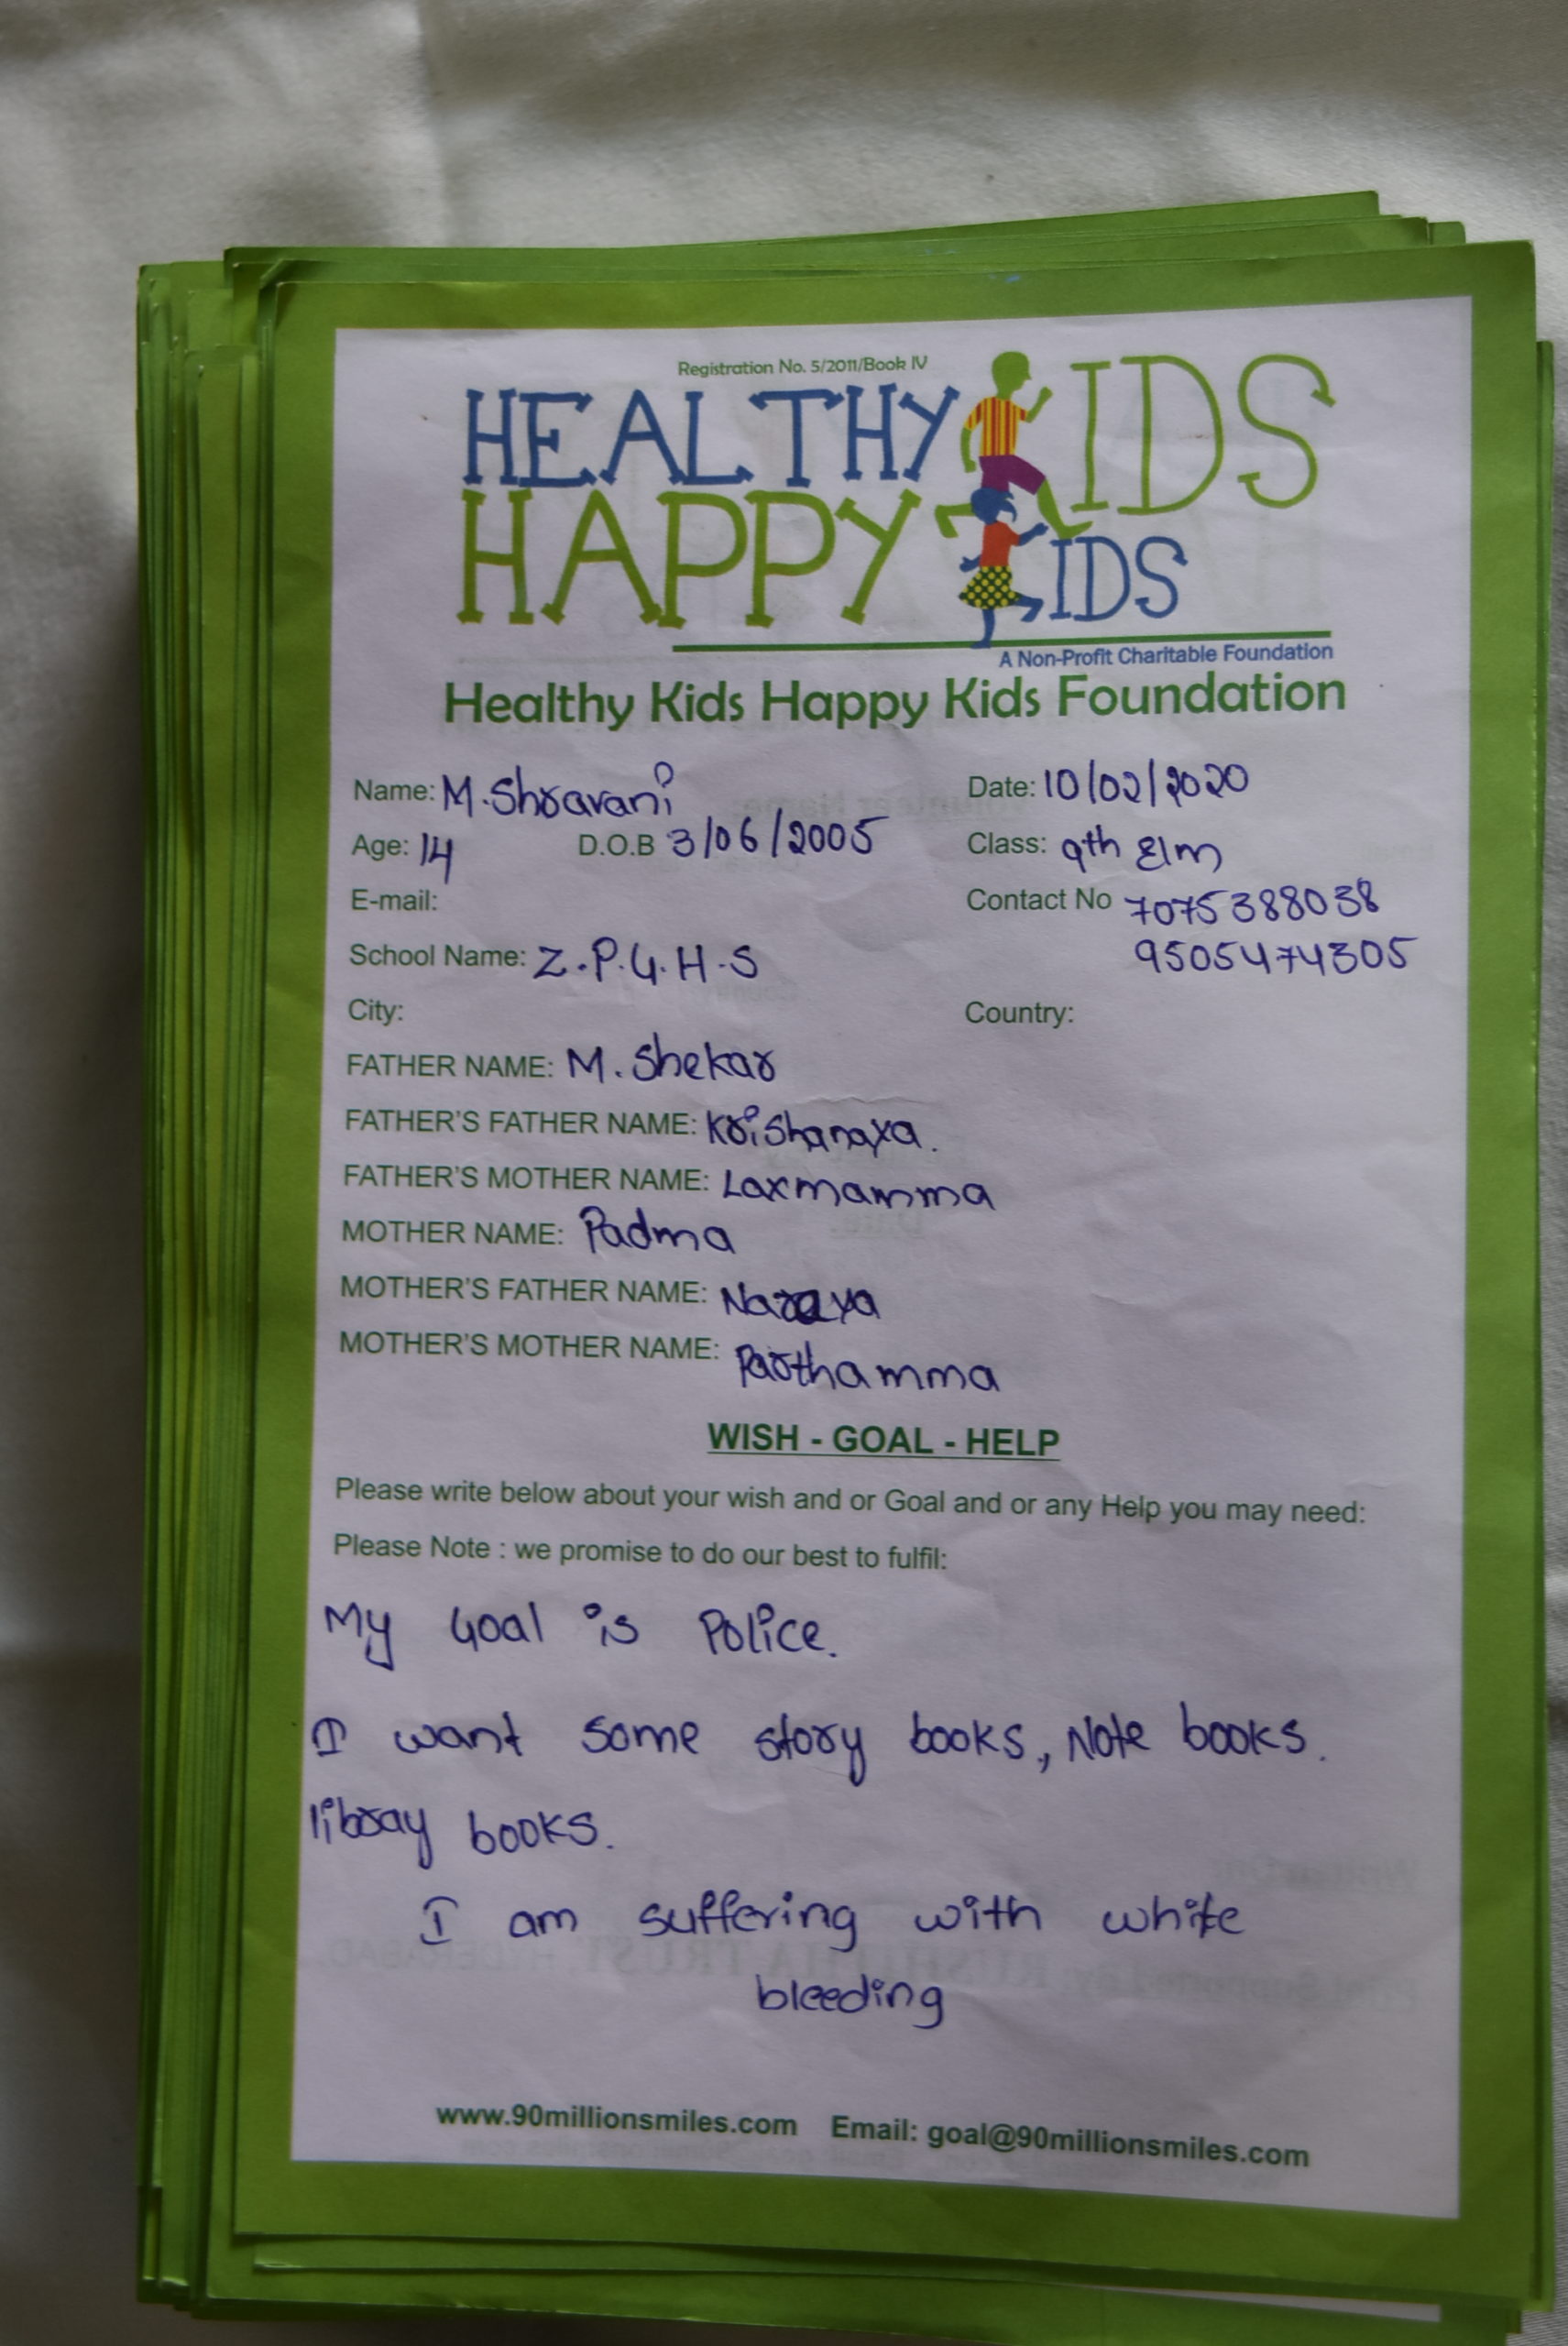 Registration No. 5/2011/Book IV
HEALTHY KIDS
HAPPY KIDS
A Non-Profit Charitable Foundation
Healthy Kids Happy Kids Foundation
Name: M.Shravani Date: 10/02/2020
Age: 14 D.O.B 3/06/2005 Class: 9th E/m
E-mail: Contact No 7075388038
School Name: Z.P.G.H.S 9505474305
City: Country:
FATHER NAME: M. Shekar
FATHER'S FATHER NAME: Krishanaya.
FATHER'S MOTHER NAME: Laxmamma
MOTHER NAME: Padma
MOTHER'S FATHER NAME: Naraya
MOTHER'S MOTHER NAME: Parthamma
WISH - GOAL - HELP
Please write below about your wish and or Goal and or any Help you may need:
Please Note : we promise to do our best to fulfil:
My Goal is Police.
I want some story books, Note books.
libray books.
I am suffering with white
bleeding
www.90millionsmiles.com Email: goal@90millionsmiles.com